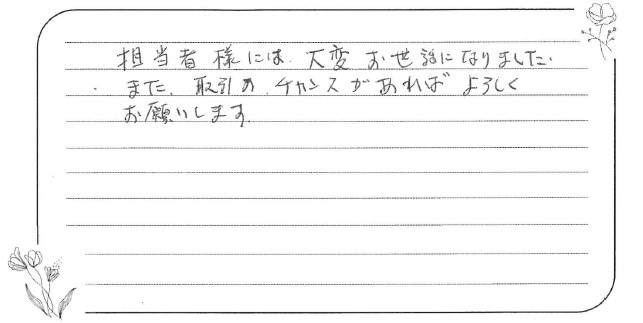 担当者様には、大変お世話になりました。
また、取引のチャンスがあれば よろしく
お願いします。